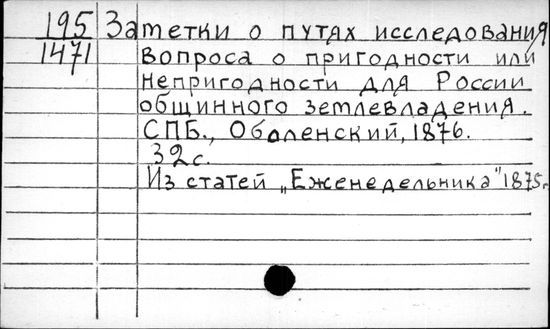 195 Заметки о путях исследования
1471 вопроса о пригодности или
непригодности для России
общинного землевладения.
СПБ., Оболенский, 1876.
32с.
Из статей „Еженедельника" 1875г.